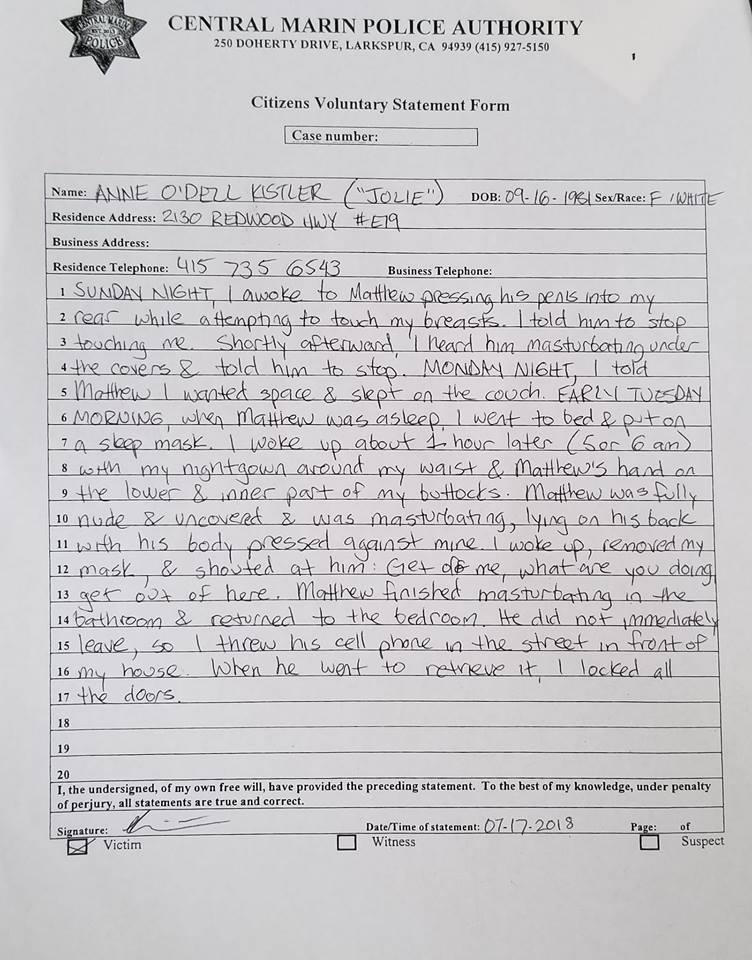 CENTRAL MARIN
EST. 2013
POLICE
CENTRAL MARIN POLICE AUTHORITY
250 DOHERTY DRIVE, LARKSPUR, CA 94939 (415) 927-5150
Citizens Voluntary Statement Form
Case number:
Name: ANNE O'DELL KISTLER ("JOLIE") DOB: 09-16-1981 Sex/Race: F / WHITE
Residence Address: 2130 REDWOOD HWY #E19
Business Address:
Residence Telephone: 415 735 6543 Business Telephone:
1 SUNDAY NIGHT, I awoke to Matthew pressing his penis into my
2 rear while attempting to touch my breasts. I told him to stop
3 touching me. Shortly afterward, I heard him masturbating under
4 the covers & told him to stop. MONDAY NIGHT, I told
5 Matthew I wanted space & slept on the couch. EARLY TUESDAY
6 MORNING, when Matthew was asleep, I went to bed & put on
7 a sleep mask. I woke up about 1 hour later (5 or 6 am)
8 with my nightgown around my waist & Matthew's hand on
9 the lower & inner part of my buttocks. Matthew was fully
10 nude & uncovered & was masturbating, lying on his back
11 with his body pressed against mine. I woke up, removed my
12 mask, & shouted at him: Get off me, what are you doing,
13 get out of here. Matthew finished masturbating in the
14 bathroom & returned to the bedroom. He did not immediately
15 leave, so I threw his cell phone in the street in front of
16 my house. When he went to retrieve it, I locked all
17 the doors.
18
19
20
I, the undersigned, of my own free will, have provided the preceding statement. To the best of my knowledge, under penalty
of perjury, all statements are true and correct.
Signature: Date/Time of statement: 07-17-2018 Page: of
Victim Witness Suspect